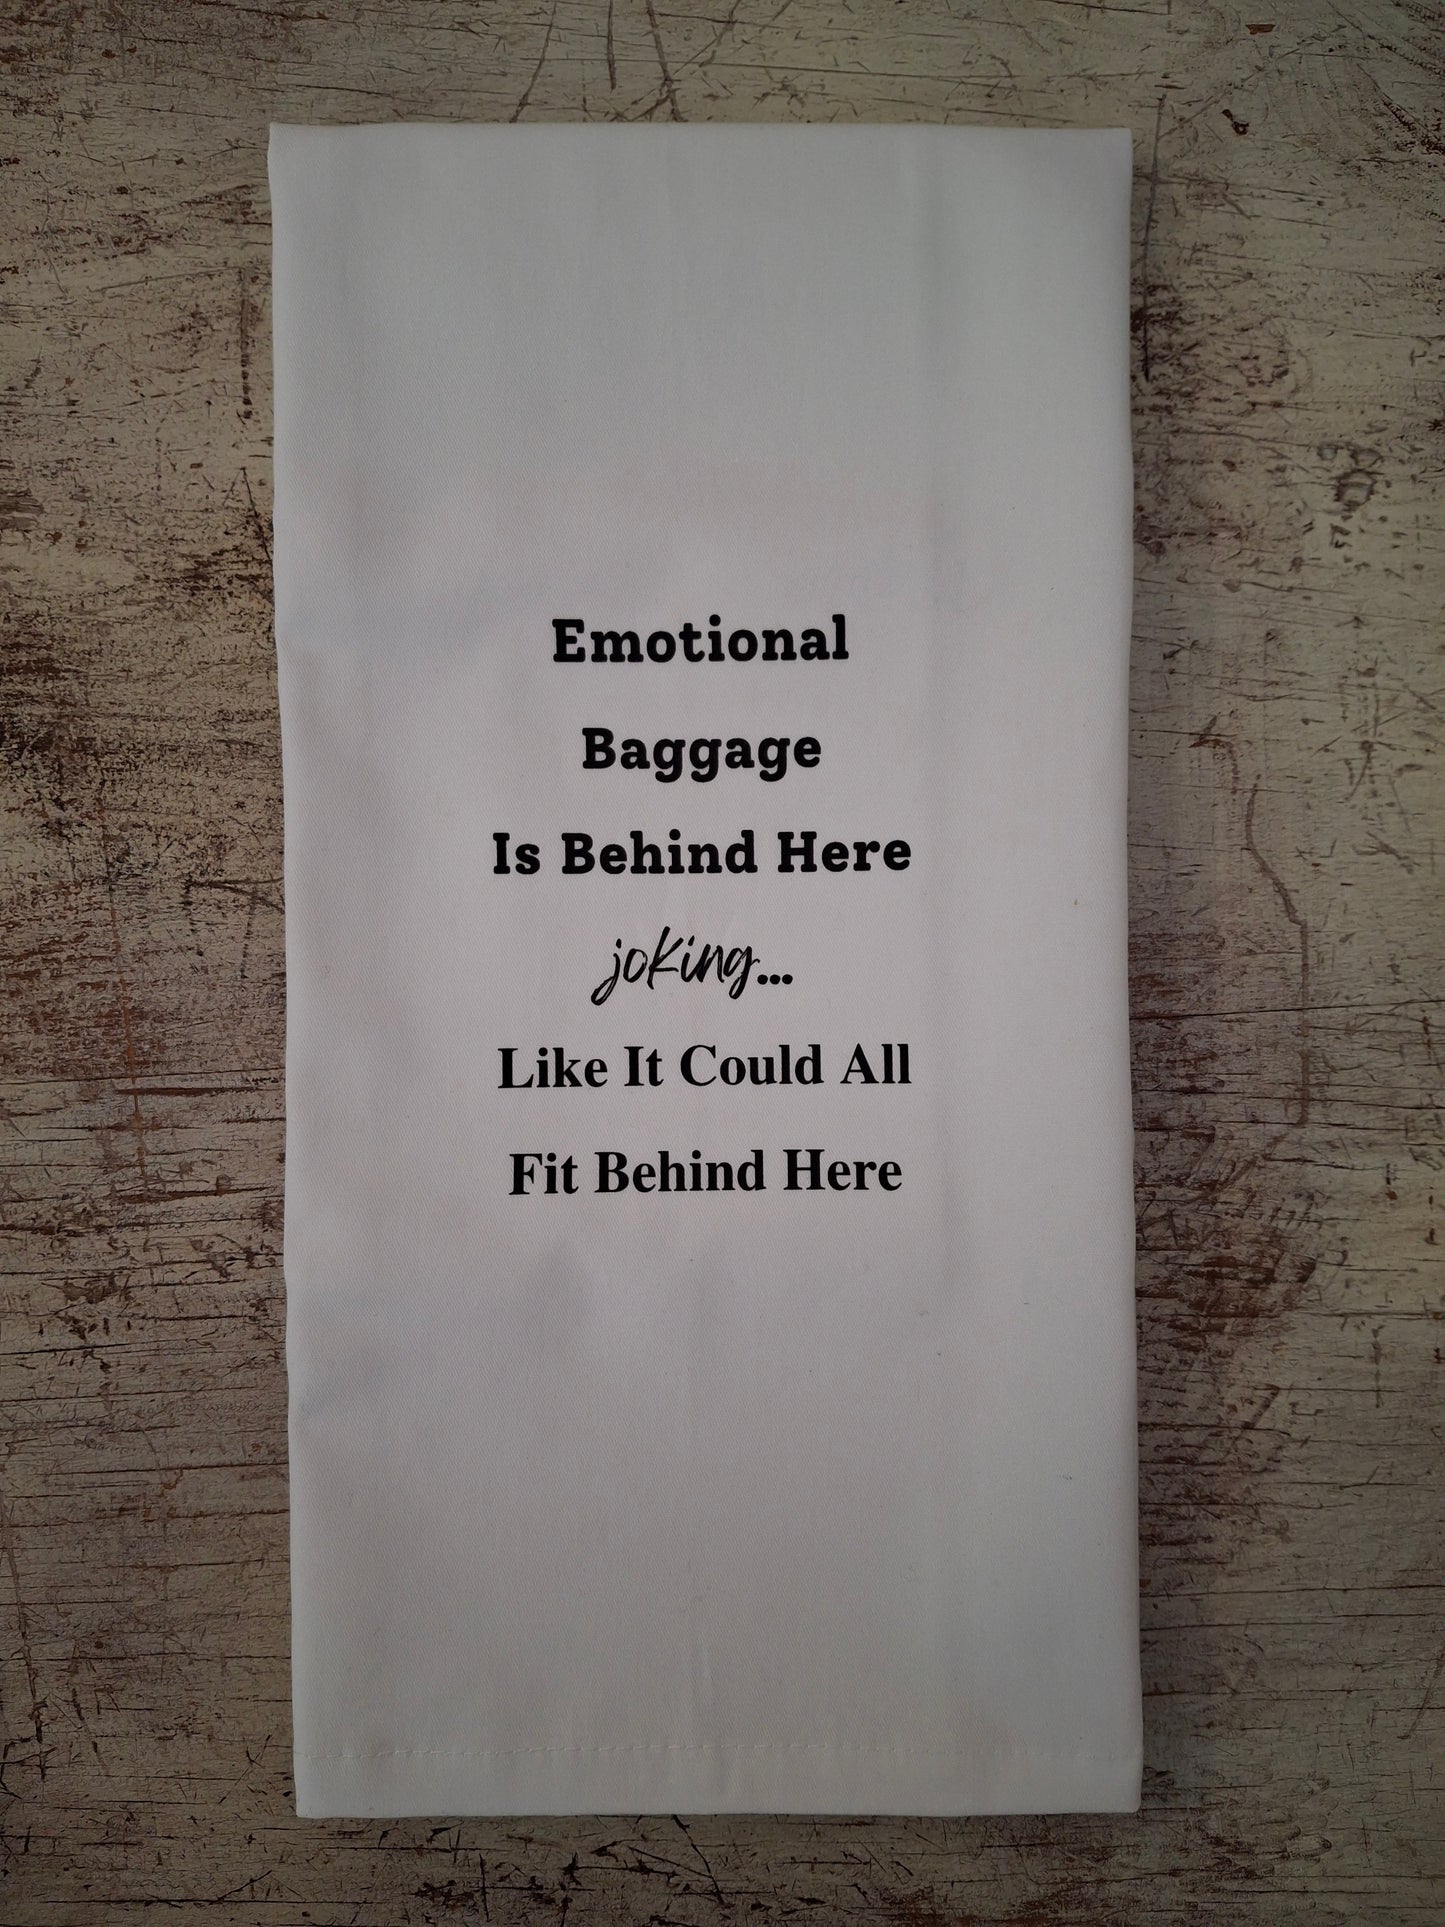 Emotional
Baggage
Is Behind Here
joking...
Like It Could All
Fit Behind Here